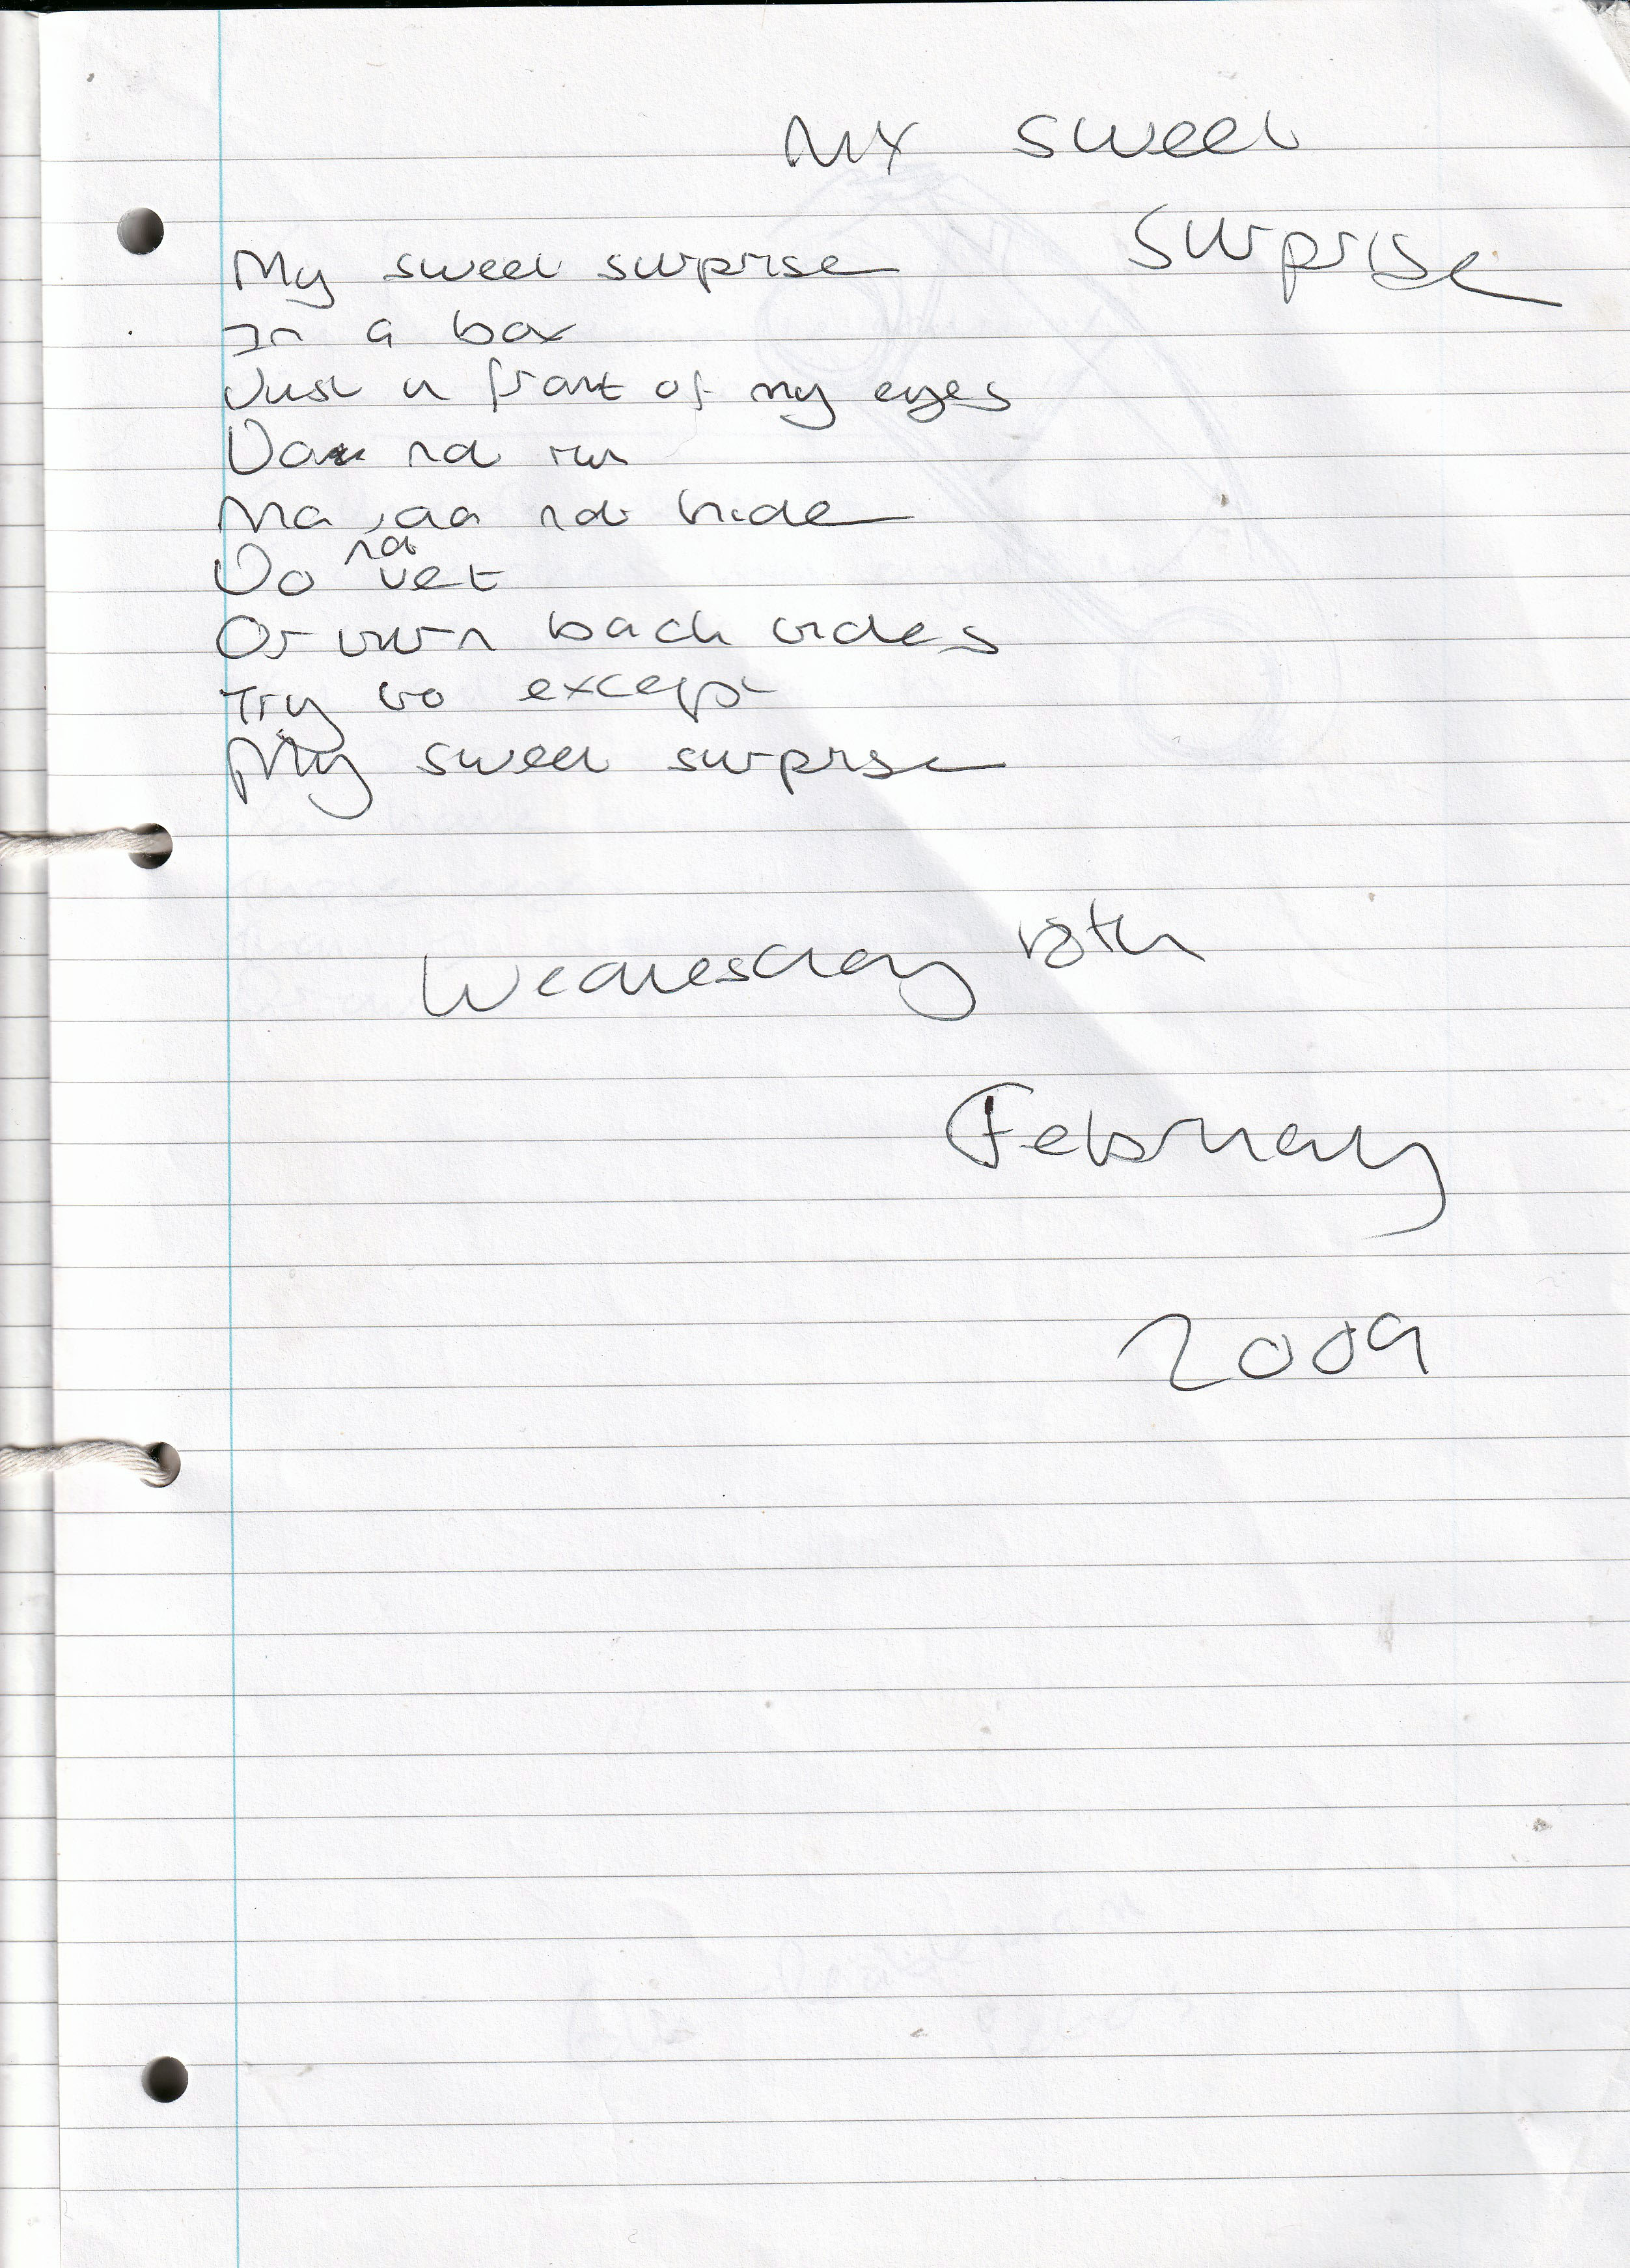 My sweet
surprise
My sweet surprise
In a box
Just in front of my eyes
Do not run
do not hide
Do not yet
Or turn back tides
Try to except
My sweet surprise
Wednesday 18th
February
2009